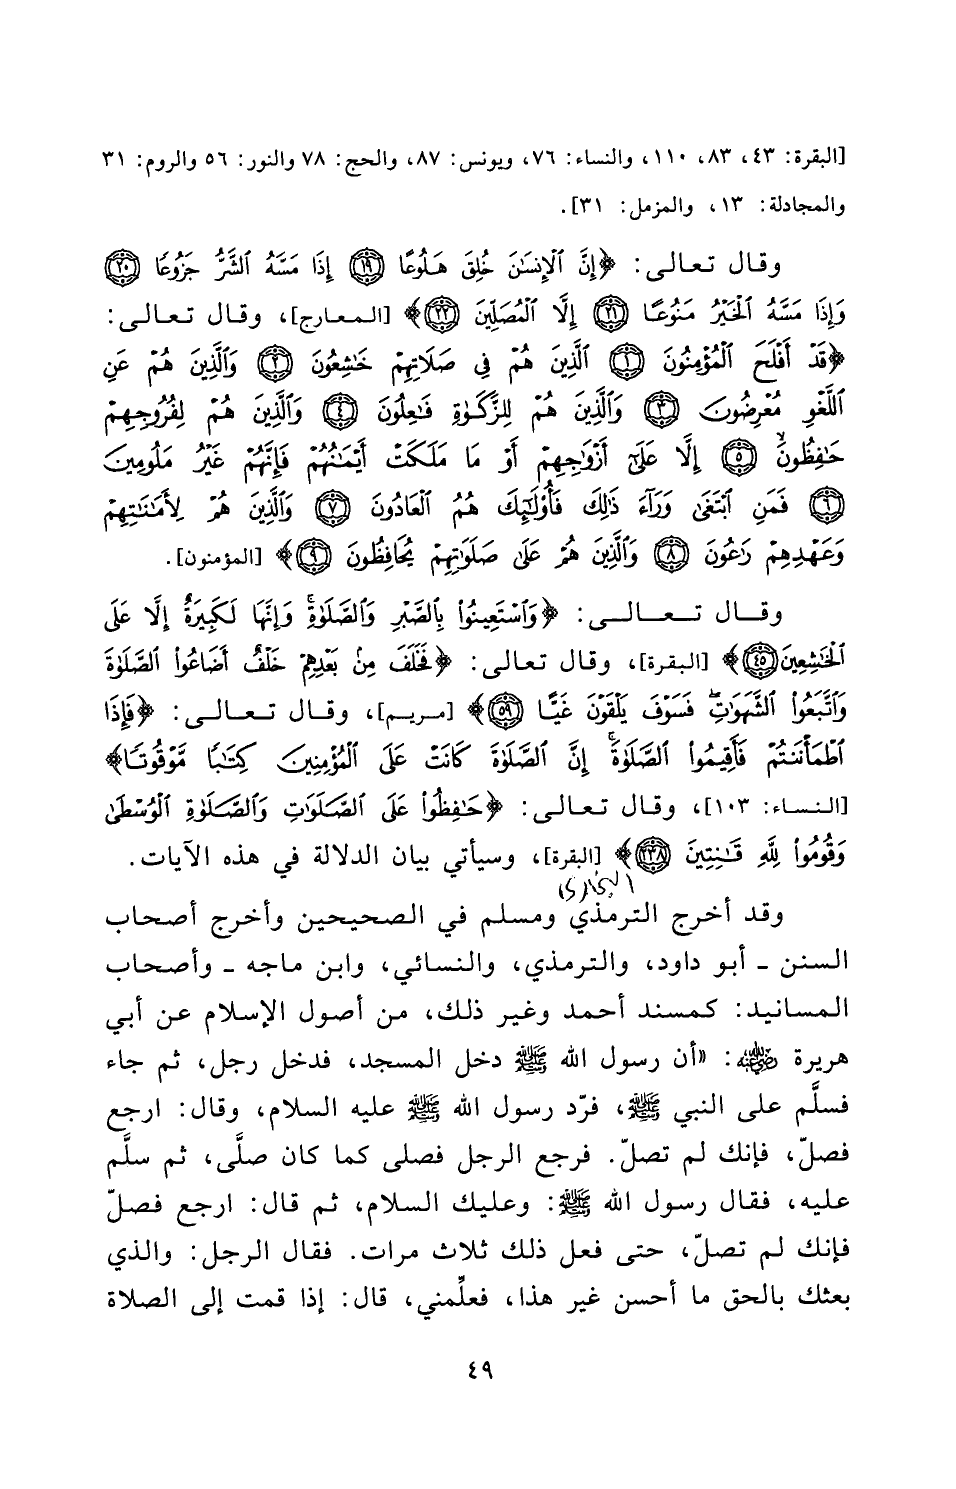 [البقرة: ٤٣، ٨٣، ١١٠، والنساء: ٧٦، ويونس: ٨٧، والحج: ٧٨ والنور: ٥٦ والروم: ٣١
والمجادلة: ١٣، والمزمل: ٣١].
وقال تعالى: ﴿إِنَّ ٱلْإِنسَٰنَ خُلِقَ هَلُوعًا ۝١٩ إِذَا مَسَّهُ ٱلشَّرُّ جَزُوعًا ۝٢٠
وَإِذَا مَسَّهُ ٱلْخَيْرُ مَنُوعًا ۝٢١ إِلَّا ٱلْمُصَلِّينَ ۝٢٢﴾ [المعارج]، وقال تعالى:
﴿قَدْ أَفْلَحَ ٱلْمُؤْمِنُونَ ۝١ ٱلَّذِينَ هُمْ فِى صَلَاتِهِمْ خَٰشِعُونَ ۝٢ وَٱلَّذِينَ هُمْ عَنِ
ٱللَّغْوِ مُعْرِضُونَ ۝٣ وَٱلَّذِينَ هُمْ لِلزَّكَوٰةِ فَٰعِلُونَ ۝٤ وَٱلَّذِينَ هُمْ لِفُرُوجِهِمْ
حَٰفِظُونَ ۝٥ إِلَّا عَلَىٰٓ أَزْوَٰجِهِمْ أَوْ مَا مَلَكَتْ أَيْمَٰنُهُمْ فَإِنَّهُمْ غَيْرُ مَلُومِينَ
۝٦ فَمَنِ ٱبْتَغَىٰ وَرَآءَ ذَٰلِكَ فَأُوْلَٰٓئِكَ هُمُ ٱلْعَادُونَ ۝٧ وَٱلَّذِينَ هُمْ لِأَمَٰنَٰتِهِمْ
وَعَهْدِهِمْ رَٰعُونَ ۝٨ وَٱلَّذِينَ هُمْ عَلَىٰ صَلَوَٰتِهِمْ يُحَافِظُونَ ۝٩﴾ [المؤمنون].
وقال تعالى: ﴿وَٱسْتَعِينُوا۟ بِٱلصَّبْرِ وَٱلصَّلَوٰةِ ۚ وَإِنَّهَا لَكَبِيرَةٌ إِلَّا عَلَى
ٱلْخَٰشِعِينَ ۝٤٥﴾ [البقرة]، وقال تعالى: ﴿فَخَلَفَ مِنۢ بَعْدِهِمْ خَلْفٌ أَضَاعُوا۟ ٱلصَّلَوٰةَ
وَٱتَّبَعُوا۟ ٱلشَّهَوَٰتِ ۖ فَسَوْفَ يَلْقَوْنَ غَيًّا ۝٥٩﴾ [مريم]، وقال تعالى: ﴿فَإِذَا
ٱطْمَأْنَنتُمْ فَأَقِيمُوا۟ ٱلصَّلَوٰةَ ۚ إِنَّ ٱلصَّلَوٰةَ كَانَتْ عَلَى ٱلْمُؤْمِنِينَ كِتَٰبًا مَّوْقُوتًا﴾
[النساء: ١٠٣]، وقال تعالى: ﴿حَٰفِظُوا۟ عَلَى ٱلصَّلَوَٰتِ وَٱلصَّلَوٰةِ ٱلْوُسْطَىٰ
وَقُومُوا۟ لِلَّهِ قَٰنِتِينَ ۝٢٣٨﴾ [البقرة]، وسيأتي بيان الدلالة في هذه الآيات.
البخاري
وقد أخرج الترمذي ومسلم في الصحيحين وأخرج أصحاب
السنن ـ أبو داود، والترمذي، والنسائي، وابن ماجه ـ وأصحاب
المسانيد: كمسند أحمد وغير ذلك، من أصول الإسلام عن أبي
هريرة رضي الله عنه: «أن رسول الله ﷺ دخل المسجد، فدخل رجل، ثم جاء
فسلَّم على النبي ﷺ، فرّد رسول الله ﷺ عليه السلام، وقال: ارجع
فصلّ، فإنك لم تصلّ. فرجع الرجل فصلى كما كان صلَّى، ثم سلَّم
عليه، فقال رسول الله ﷺ: وعليك السلام، ثم قال: ارجع فصلّ
فإنك لم تصلّ، حتى فعل ذلك ثلاث مرات. فقال الرجل: والذي
بعثك بالحق ما أحسن غير هذا، فعلِّمني، قال: إذا قمت إلى الصلاة
٤٩